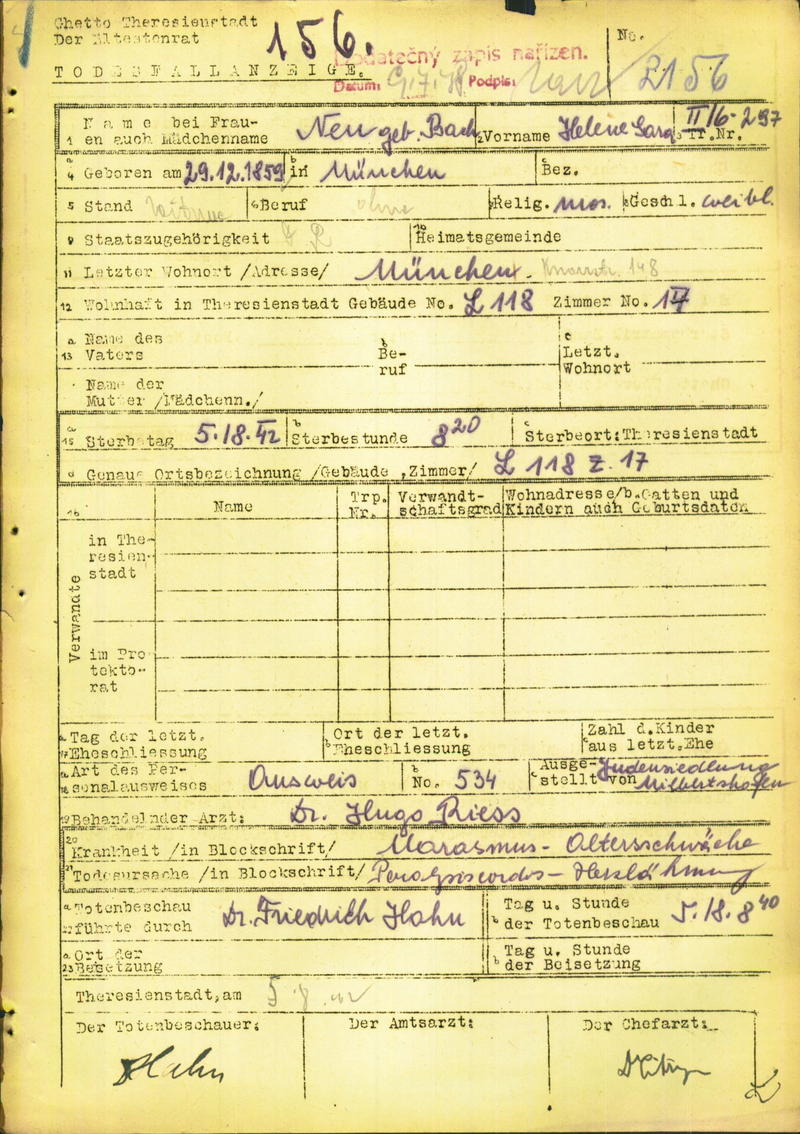 Ghetto Theresienstadt
Der Ältestenrat
156.
Dodatečný zápis nařízen.
Datum: Podpis:
No. 2156
TODESFALLANZEIGE.
1 Name bei Frauen auch Mädchenname Neu geb. Bach 2 Vorname Helene Sara 3 Tr.Nr. II/16-297
4 a Geboren am 29.12.1859 b in München c Bez.
5 Stand 6 Beruf ohne 7 Relig. mos. 8 Geschl. weibl.
9 Staatszugehörigkeit 10 Heimatsgemeinde
11 Letzter Wohnort /Adresse/ München. Knorrstr. 148
12 Wohnhaft in Theresienstadt Gebäude No. L 118 Zimmer No. 17
a 13 Name des Vaters b Beruf c Letzt. Wohnort
Name der Mutter /Mädchenn./
a 15 Sterbetag 5./8.42 b Sterbestunde 8 20 c Sterbeort: Theresienstadt
d Genaue Ortsbezeichnung /Gebäude, Zimmer/ L 118 Z. 17
16 Name Trp. Nr. Verwandtschaftsgrad Wohnadresse/b. Gatten und Kindern auch Geburtsdaten
Verwandte
in Theresienstadt
im Protektorat
a 17 Tag der letzt. Eheschliessung b Ort der letzt. Eheschliessung c Zahl d. Kinder aus letzt. Ehe
a 18 Art des Personalausweises Ausweis b No. 534 c Ausgestellt von Judensiedlung Milbertshofen
19 Behandelnder Arzt: Dr. Hugo Riess
20 Krankheit /in Blockschrift/ Marasmus - Altersschwäche
21 Todesursache /in Blockschrift/ Paralysis cordis - Herzlähmung
a 22 Totenbeschau führte durch Dr. Friedrich Hahn b Tag u. Stunde der Totenbeschau 5./8. 8 40
a 23 Ort der Beisetzung b Tag u. Stunde der Beisetzung
Theresienstadt, am 5
Der Totenbeschauer: Der Amtsarzt: Der Chefarzt:
Hahn